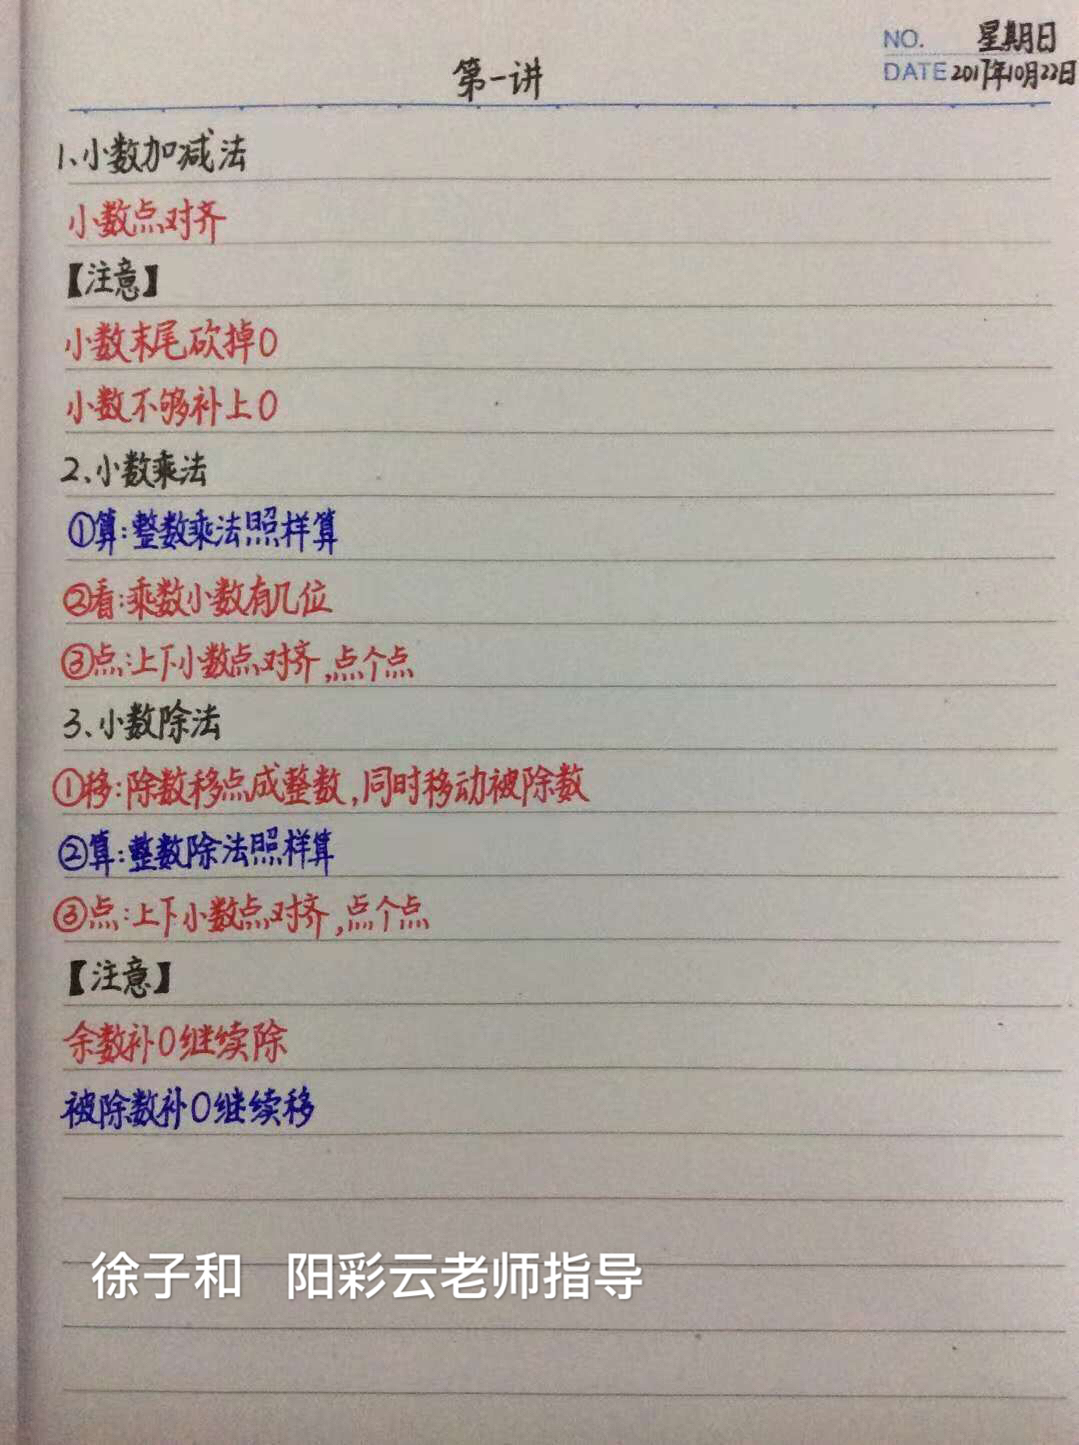 NO. 星期日
第一讲
DATE 2017年10月22日
1、小数加减法
小数点对齐
【注意】
小数末尾砍掉0
小数不够补上0
2、小数乘法
①算:整数乘法照样算
②看:乘数小数有几位
③点:上下小数点对齐,点个点
3、小数除法
①移:除数移点成整数,同时移动被除数
②算:整数除法照样算
③点:上下小数点对齐,点个点
【注意】
余数补0继续除
被除数补0继续移
徐子和 阳彩云老师指导